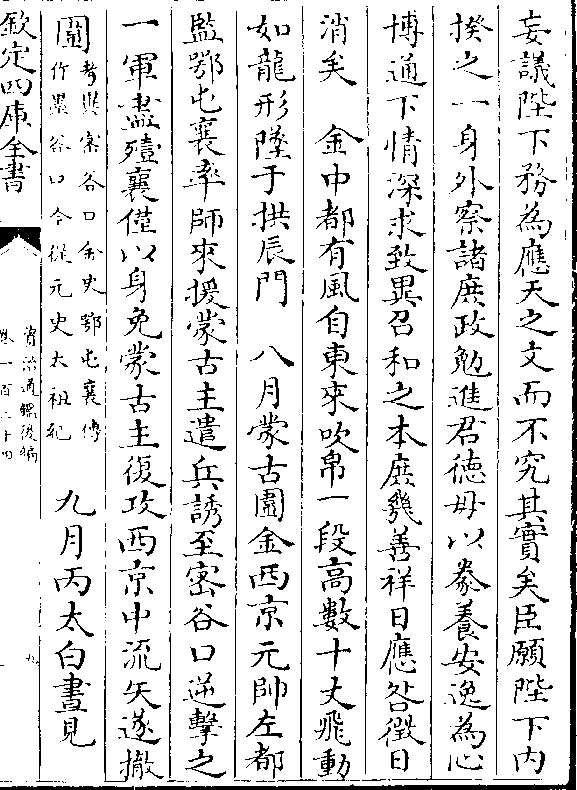 妄議陛下務為應天之文而不究其實矣臣願陛下内
揆之一身外察諸庶政勉進君德毋以豢養安逸為心
博通下情深求致異召和之本庶幾善祥日應咎徴日
消矣　金中都有風自東來吹帛一段高數十丈飛動
如龍形墜于拱辰門　八月蒙古圍金西京元帥左都
監鄂屯襄率師來援蒙古主遣兵誘至密谷口逆擊之
一軍盡殪襄僅以身免蒙古主復攻西京中流矢遂撤
圍
考異密谷口金史鄂屯襄傳
作墨谷口今從元史太祖紀
九月丙太白晝見
欽定四庫全書
資治通鑑後編
卷一百三十四
九